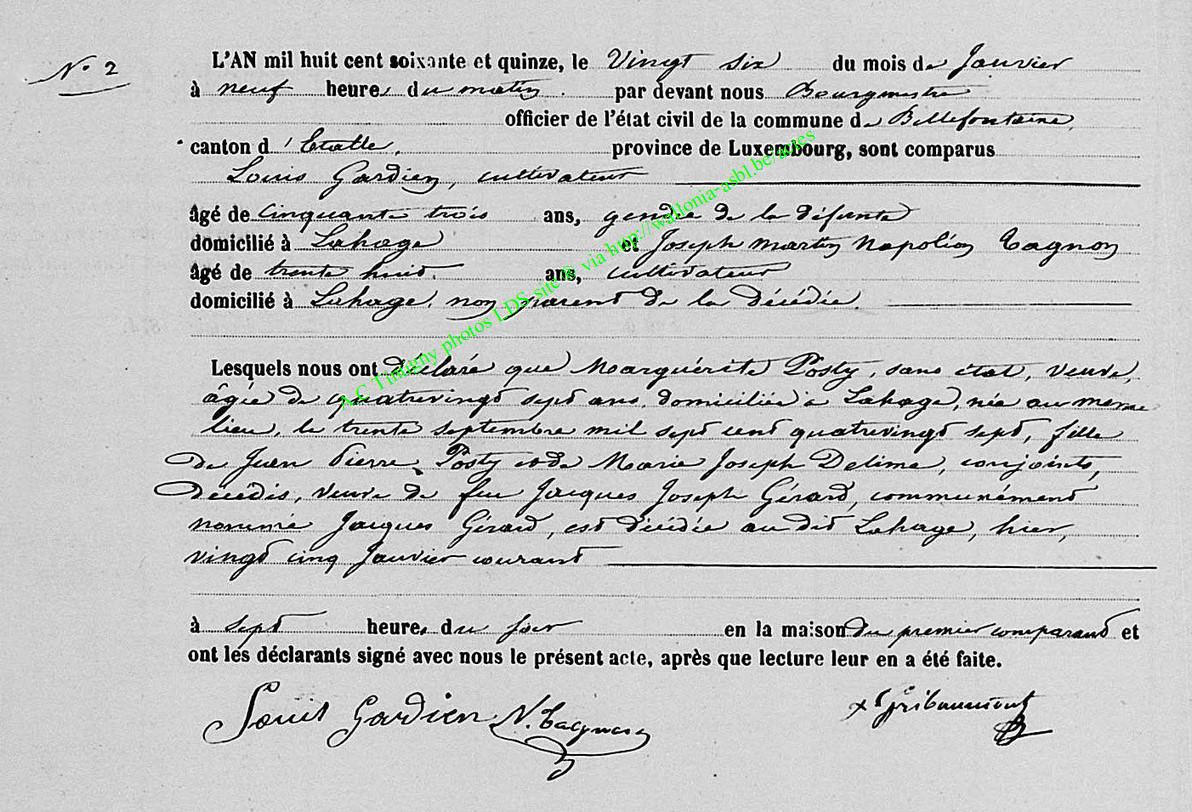 N.o 2
L'AN mil huit cent soixante et quinze, le Vingt six du mois de Janvier
à neuf heures du matin. par devant nous Bourgmestre
officier de l'état civil de la commune de Bellefontaine,
canton d'Etalle, province de Luxembourg, sont comparus
Louis Gardien, cultivateur
âgé de cinquante trois ans, gendre de la défunte
domicilié à Lahage et Joseph Martin Napoléon Tagnon
âgé de trente huit ans, cultivateur
domicilié à Lahage, non parent de la décédée
Lesquels nous ont déclaré que Marguérite Posty, sans état, veuve,
âgée de quatrevingt sept ans, domiciliée à Lahage, née au meme
lieu, le trente septembre mil sept cent quatrevingt sept, fille
de Jean Pierre Posty et de Marie Joseph Delime, conjoints,
décédés, veuve de feu Jacques Joseph Gérard, communément
nommé Jacques Gérard, est décédée au dit Lahage, hier,
vingt cinq Janvier courant
à sept heures du soir en la maison du premier comparant et
ont les déclarants signé avec nous le présent acte, après que lecture leur en a été faite.
Louis Gardien N. Tagnon
A.C Tintigny photos LDS site via http://wallonia-asbl.be/actes